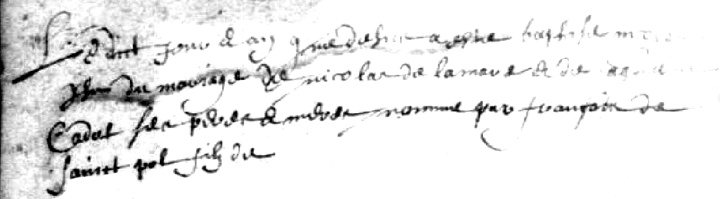 Ledict jour & an que dessus a esté baptisé
du mariage de nicolas de lamare & de
Cadot ses peres & meres nomme par françois de
sainct pol filz de